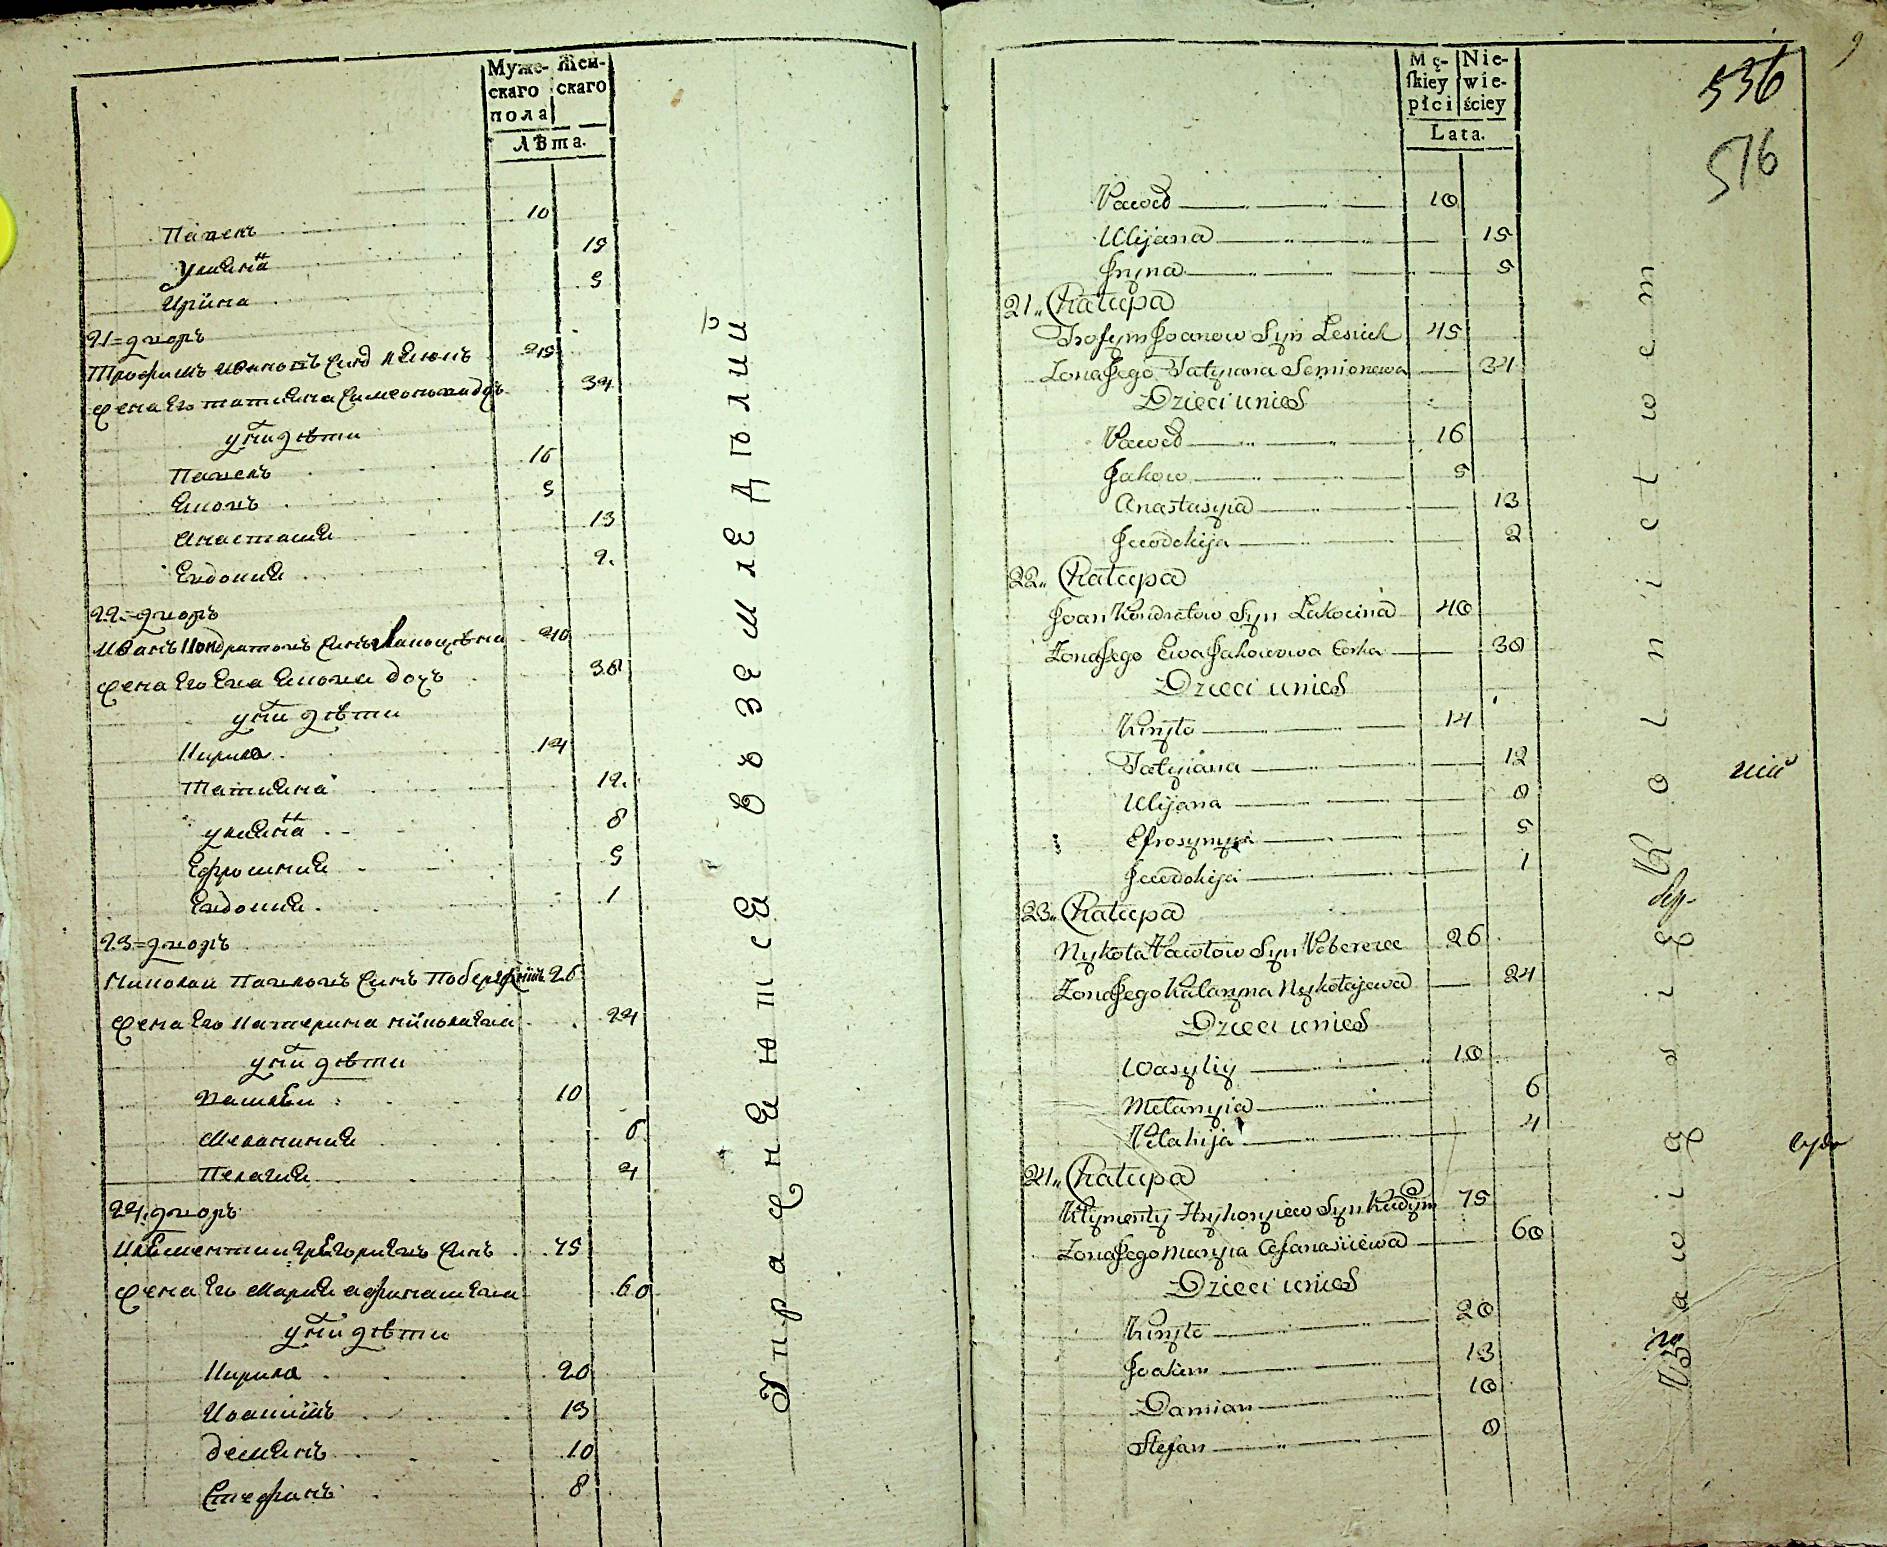 Муже-
скаго
пола
Жен-
скаго
лѣта.
Павелъ 10
Улиана 15
Ирина 5
21=дворъ
Трофимъ Ивановъ Синъ 45
Жена Его татиана Симеонова дочъ 34
у нїи дѣти
Павелъ 16
Яковъ 5
Анастасия 13
Евдокия 2.
22=дворъ
Иванъ Кондратовъ Синъ Лакоцѣна 40
жена Его Ева Якова дочъ 30
у нїи дѣти
Кирило 14
Татиана 12.
улияна 8
Ефросиния 5
Евдокия 1
23=дворъ
Николай Павловъ Синъ Побережний 26
жена Его Катерина николаева 24
у нїи дѣти
Василий 10
Меланиния 6
Пелагия 4
24.дворъ
Климентий Григориевъ Синъ 75
жена Его Мария афанасиева 60
у нїи дѣти
Кирило 20
Иоакимъ 13
демянъ 10
Стефанъ 8
Упражняются въ земледѣлий
Mę-
ſkiey
płci
Nie-
wie-
ściey
Lata.
536
516
9
Paweł 10
Ulijana 15
Jryna 5
21„ Chałupa
Trofym Joanow Syn Lesiuk 45
Żona Jego Tatyiana Semionowa 34
Dzieci u nich
Paweł 16
Jakow 5
Anastasyia 13
Jewdokija 2
22„ Chałupa
Joan Kondratow Syn Lakocina 40
Żona Jego Ewa Jakowowa Corka 30
Dzieci u nich
Kiryło 14
Tatyiana 12
Ulijana 8
Efrosynyia 5
Jewdokija 1
23„ Chałupa
Nykoła Pawłow Syn Poberezec 26
Żona Jego Kataryna Nykołajewa 24
Dzieci u nich
Wasyliy 10
Mełanyia 6
Pełahija 4
24„ Chałupa
Klymentiy Hryhoryiew Syn 75
Żona Jego Maryia Afanasiiewa 60
Dzieci u nich
Kiryło 20
Joakim 13
Damian 10
Stefan 8
Bawią się Rolnictwem